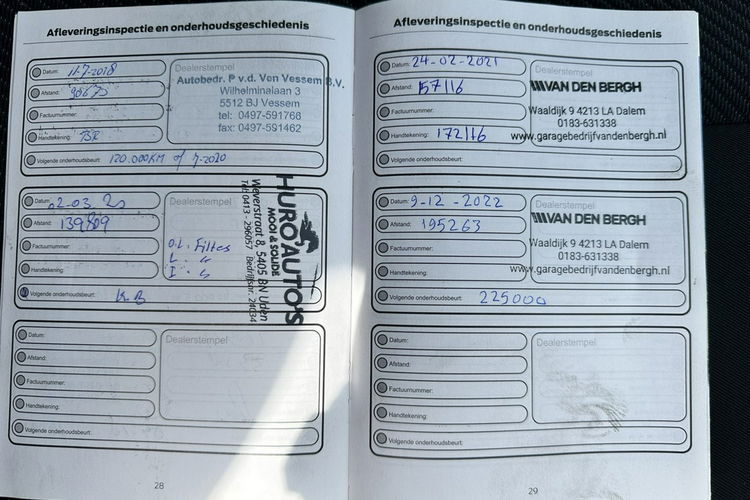 Afleveringsinspectie en onderhoudsgeschiedenis
Datum: 11-7-2018
Afstand: 90675
Factuurnummer:
Handtekening:
Volgende onderhoudsbeurt: 120.000KM of 7-2020
Dealerstempel
Autobedr. P v.d. Ven Vessem B.V.
Wilhelminalaan 3
5512 BJ Vessem
tel: 0497-591768
fax: 0497-591462
Datum: 02-03. 20
Afstand:
Factuurnummer:
Handtekening:
Volgende onderhoudsbeurt: K.B
Dealerstempel
HURO AUTO'S
MOOI & SOLIDE
Weverstraat 8, 5405 BN Uden
Tel: 0413 - 296057 Bedrijfsnr. 24034
Datum:
Afstand:
Factuurnummer:
Handtekening:
Volgende onderhoudsbeurt:
Dealerstempel
28
Afleveringsinspectie en onderhoudsgeschiedenis
Datum: 24-02-2021
Afstand: 157116
Factuurnummer:
Handtekening: 172116
Volgende onderhoudsbeurt:
Dealerstempel
VAN DEN BERGH
Waaldijk 9 4213 LA Dalem
0183-631338
www.garagebedrijfvandenbergh.nl
Datum: 9-12-2022
Afstand: 195263
Factuurnummer:
Handtekening:
Volgende onderhoudsbeurt: 225000
Dealerstempel
VAN DEN BERGH
Waaldijk 9 4213 LA Dalem
0183-631338
www.garagebedrijfvandenbergh.nl
Datum:
Afstand:
Factuurnummer:
Handtekening:
Volgende onderhoudsbeurt:
Dealerstempel
29